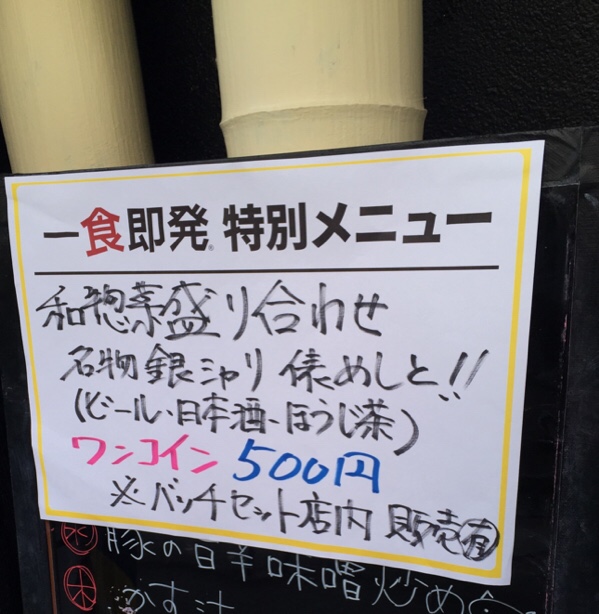 一食即発® 特別メニュー
和惣菜盛り合わせ
名物銀シャリ俵めしと!!
(ビール・日本酒・ほうじ茶)
ワンコイン 500円
※バッチセット店内 販売有
㊌ 豚の
味噌炒め
㊍ かす汁